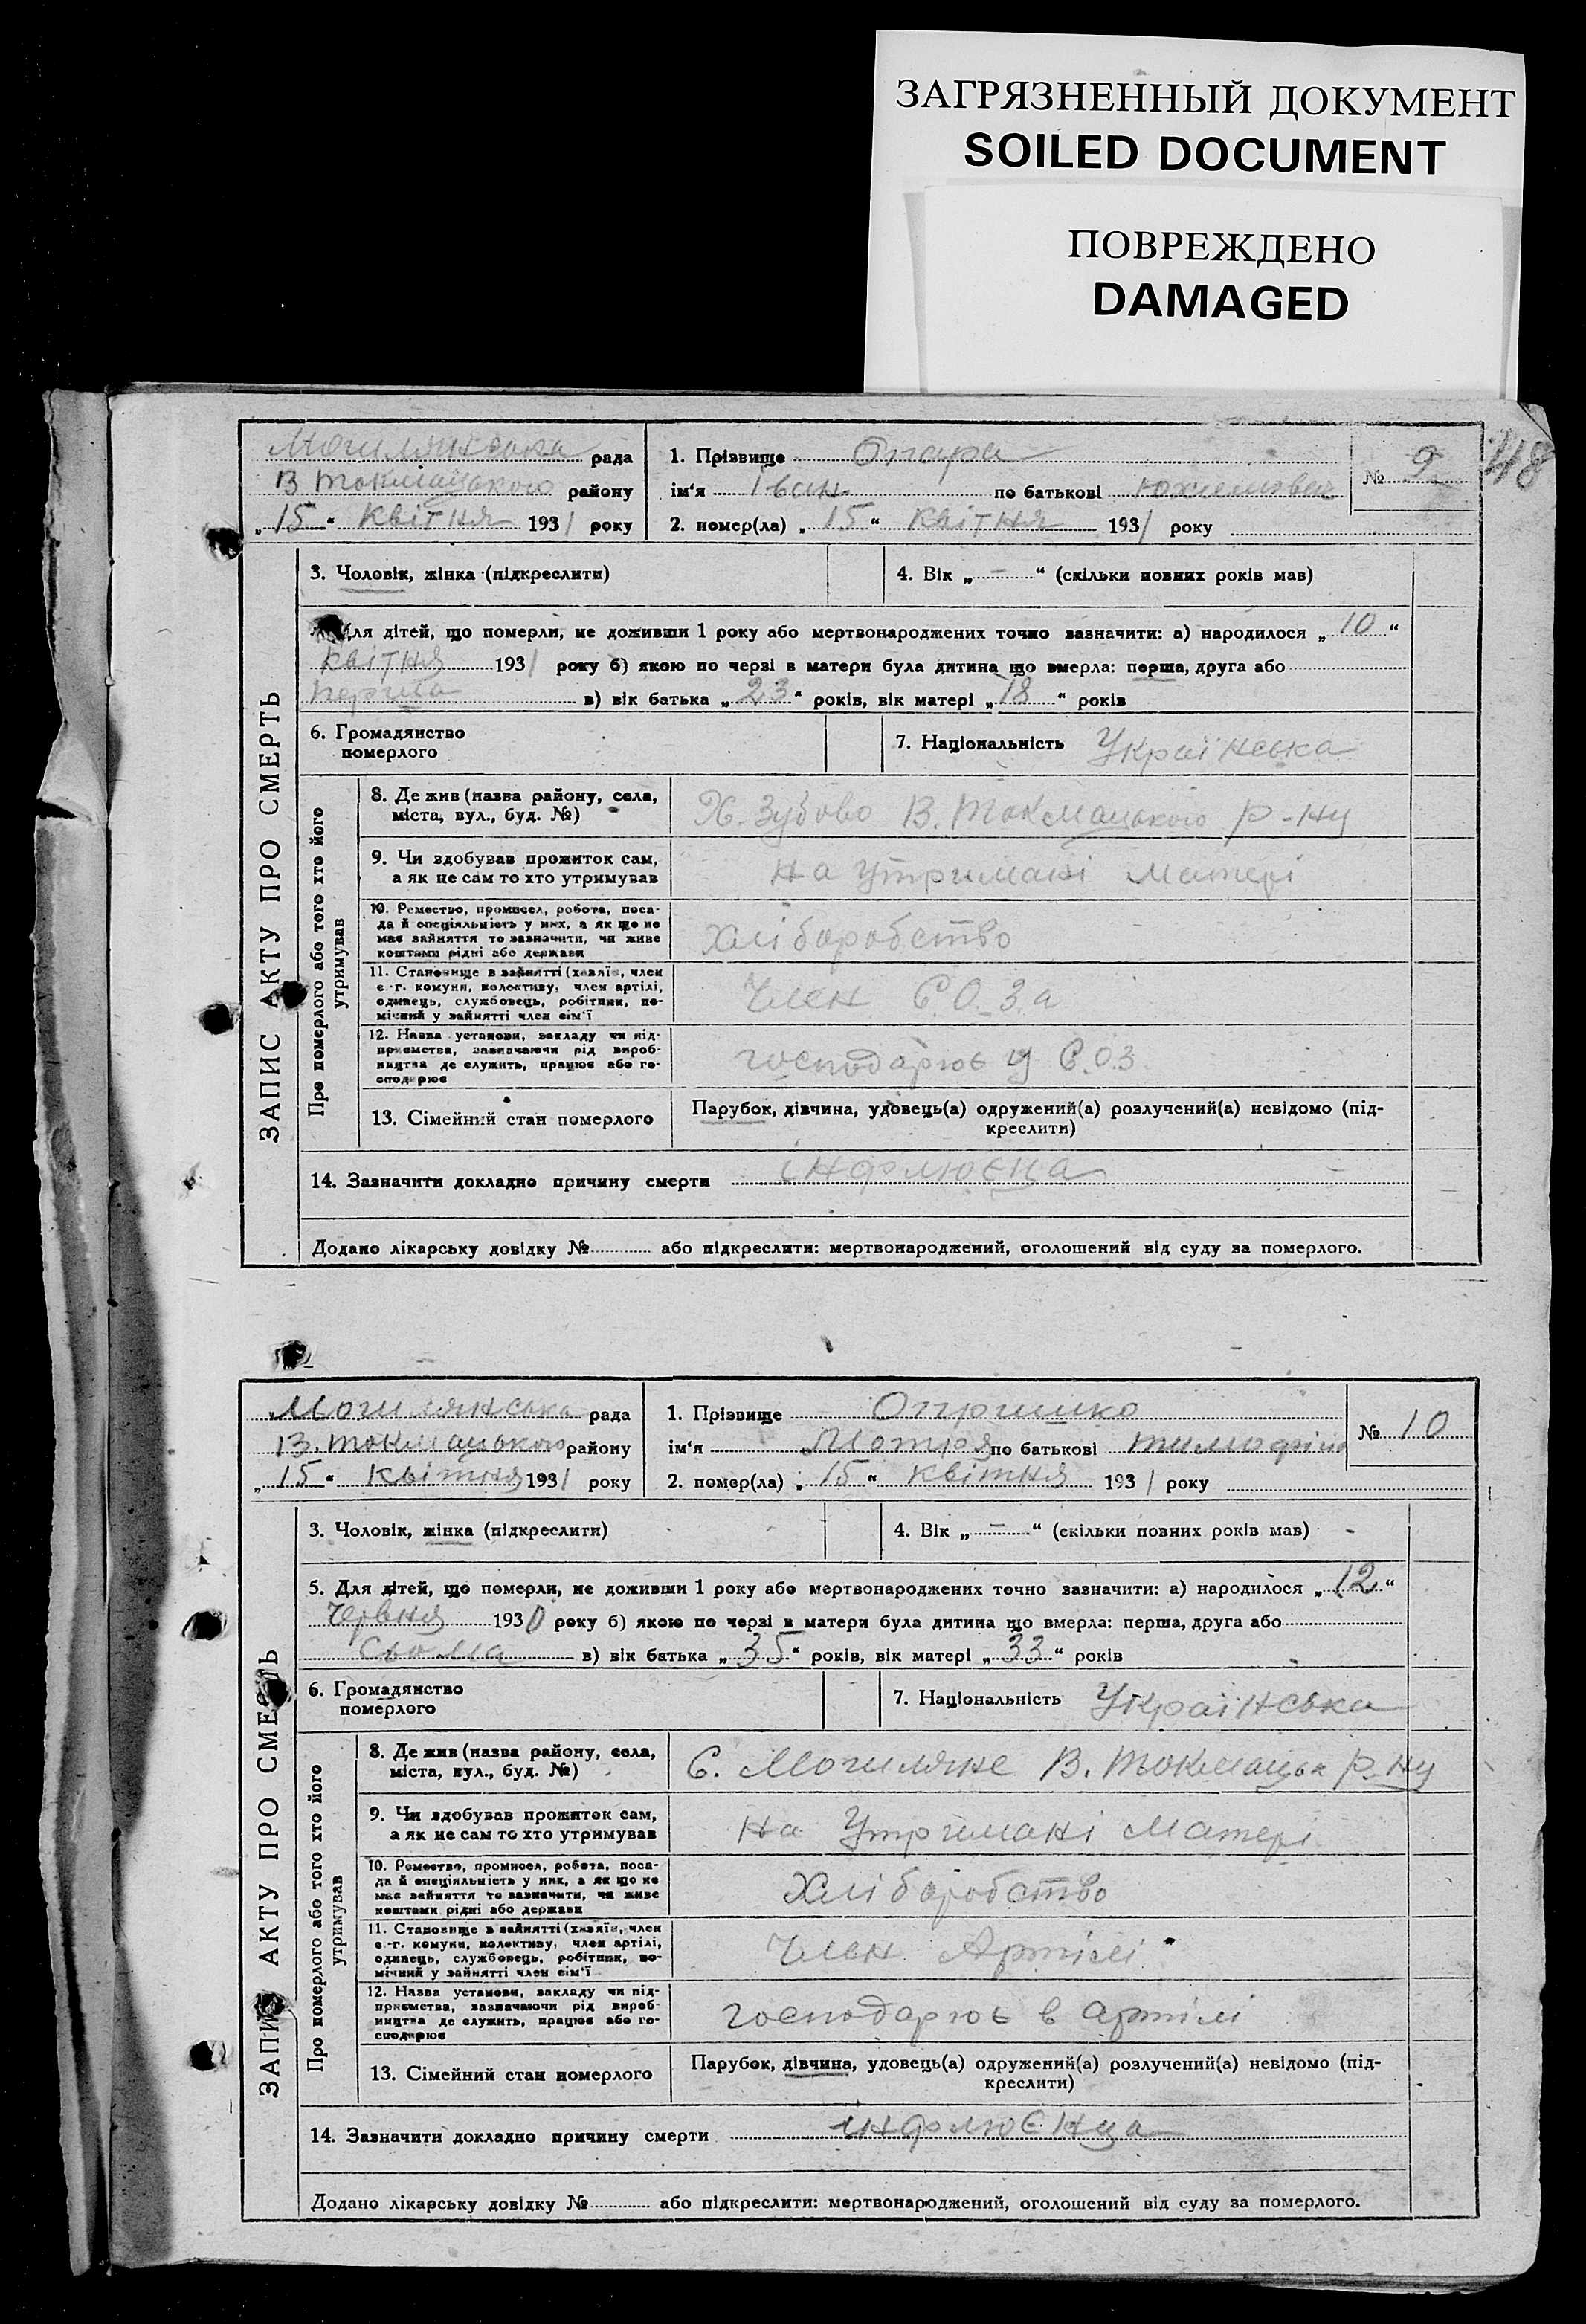 ЗАГРЯЗНЕННЫЙ ДОКУМЕНТ
SOILED DOCUMENT
ПОВРЕЖДЕНО
DAMAGED
48
Могилянська рада
В Токмацького району
„15“ Квітня 1931 року
1. Прізвище Опара
ім'я Іван по батькові
2. помер(ла) „15“ Квітня 1931 року
№ 9
ЗАПИС АКТУ ПРО СМЕРТЬ
3. Чоловік, жінка (підкреслити)
4. Вік „—“ (скільки повних років мав)
Для дітей, що померли, не доживши 1 року або мертвонароджених точно зазначити: а) народилося „10“
Квітня 1931 року б) якою по черзі в матери була дитина що вмерла: перша, друга або
перша в) вік батька „23“ років, вік матері „18“ років
6. Громадянство
померлого
7. Національність Українська
Про померлого або того хто його
утримував
8. Де жив (назва району, села,
міста, вул., буд. №)
Х. Зубово В. Токмацького р-ну
9. Чи здобував прожиток сам,
а як не сам то хто утримував
на утримані матері
10. Ремество, промисел, робота, поса-
да й спеціяльність у них, а як що не
має зайняття то зазначити, чи живе
коштами рідні або держави
Хліборобство
11. Становище в зайнятті (хазяїн, член
с.-г. комуни, колективу, член артілі,
одинець, службовець, робітник, по-
мічний у зайнятті член сім'ї
Член С.О.З.а
12. Назва установи, закладу чи під-
приємства, зазначаючи рід вироб-
ництва де служить, працює або го-
сподарює
господарює у С.О.З.
13. Сімейний стан померлого
Парубок, дівчина, удовець(а) одружений(а) розлучений(а) невідомо (під-
креслити)
14. Зазначити докладно причину смерти інфлюєнца
Додано лікарську довідку № або підкреслити: мертвонароджений, оголошений від суду за померлого.
Могилянська рада
В. Токмацького району
„15“ Квітня 1931 року
1. Прізвище Опришко
ім'я Мотря по батькові
2. помер(ла) „15“ Квітня 1931 року
№ 10
ЗАПИС АКТУ ПРО СМЕРТЬ
3. Чоловік, жінка (підкреслити)
4. Вік „—“ (скільки повних років мав)
5. Для дітей, що померли, не доживши 1 року або мертвонароджених точно зазначити: а) народилося „12“
Червня 1930 року б) якою по черзі в матери була дитина що вмерла: перша, друга або
Сьома в) вік батька „35“ років, вік матері „33“ років
6. Громадянство
померлого
7. Національність Українська
Про померлого або того хто його
утримував
8. Де жив (назва району, села,
міста, вул., буд. №)
С. Могиляне В. Токмацьк р-ну
9. Чи здобував прожиток сам,
а як не сам то хто утримував
на Утримані Матері
10. Ремество, промисел, робота, поса-
да й спеціяльність у них, а як що не
має зайняття то зазначити, чи живе
коштами рідні або держави
Хліборобство
11. Становище в зайнятті (хазяїн, член
с.-г. комуни, колективу, член артілі,
одинець, службовець, робітник, по-
мічний у зайнятті член сім'ї
Член Артілі
12. Назва установи, закладу чи під-
приємства, зазначаючи рід вироб-
ництва де служить, працює або го-
сподарює
господарює в артілі
13. Сімейний стан померлого
Парубок, дівчина, удовець(а) одружений(а) розлучений(а) невідомо (під-
креслити)
14. Зазначити докладно причину смерти інфлюєнца
Додано лікарську довідку № або підкреслити: мертвонароджений, оголошений від суду за померлого.